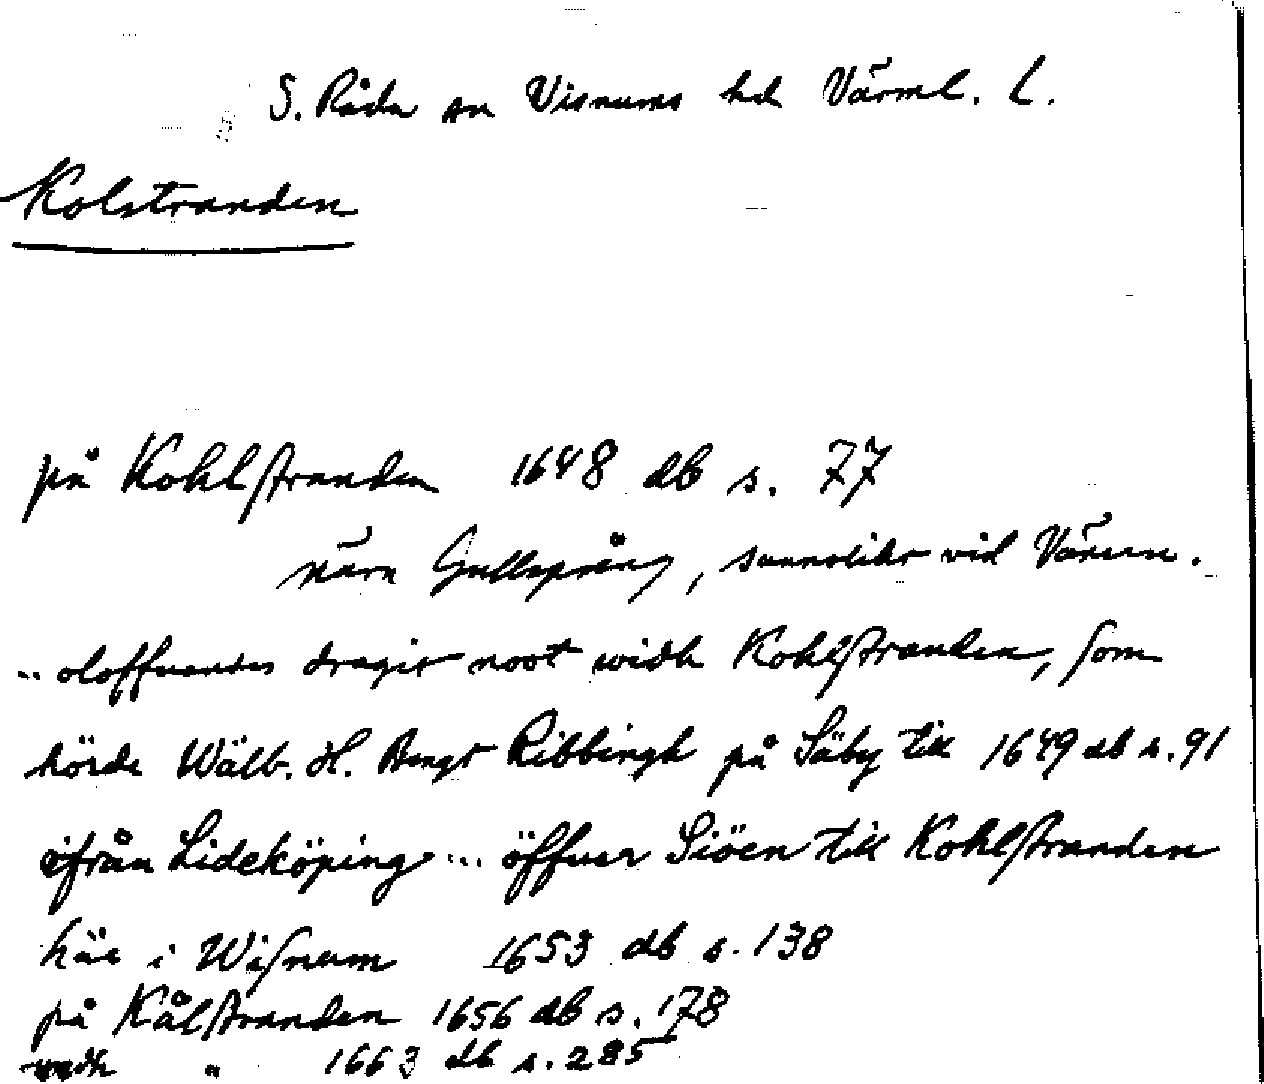 S. Råda sn Visnums hd Värml. L.
Kolstranden
på Kohlstranden 1648 db s. 77
nära Gullspång, sannolikt vid Vänern.
.. oloffuandes dragit noot widh Kohlstranden, som
hörde Wälb. H. Bengt Ribbingh på Säby till 1649 db s. 91
ifrån Lideköping ... öffuer Siöen till Kohlstranden
här i Wisnum 1653 db s. 138
på Kålstranden 1656 db s. 178
widh " 1663 db s. 285